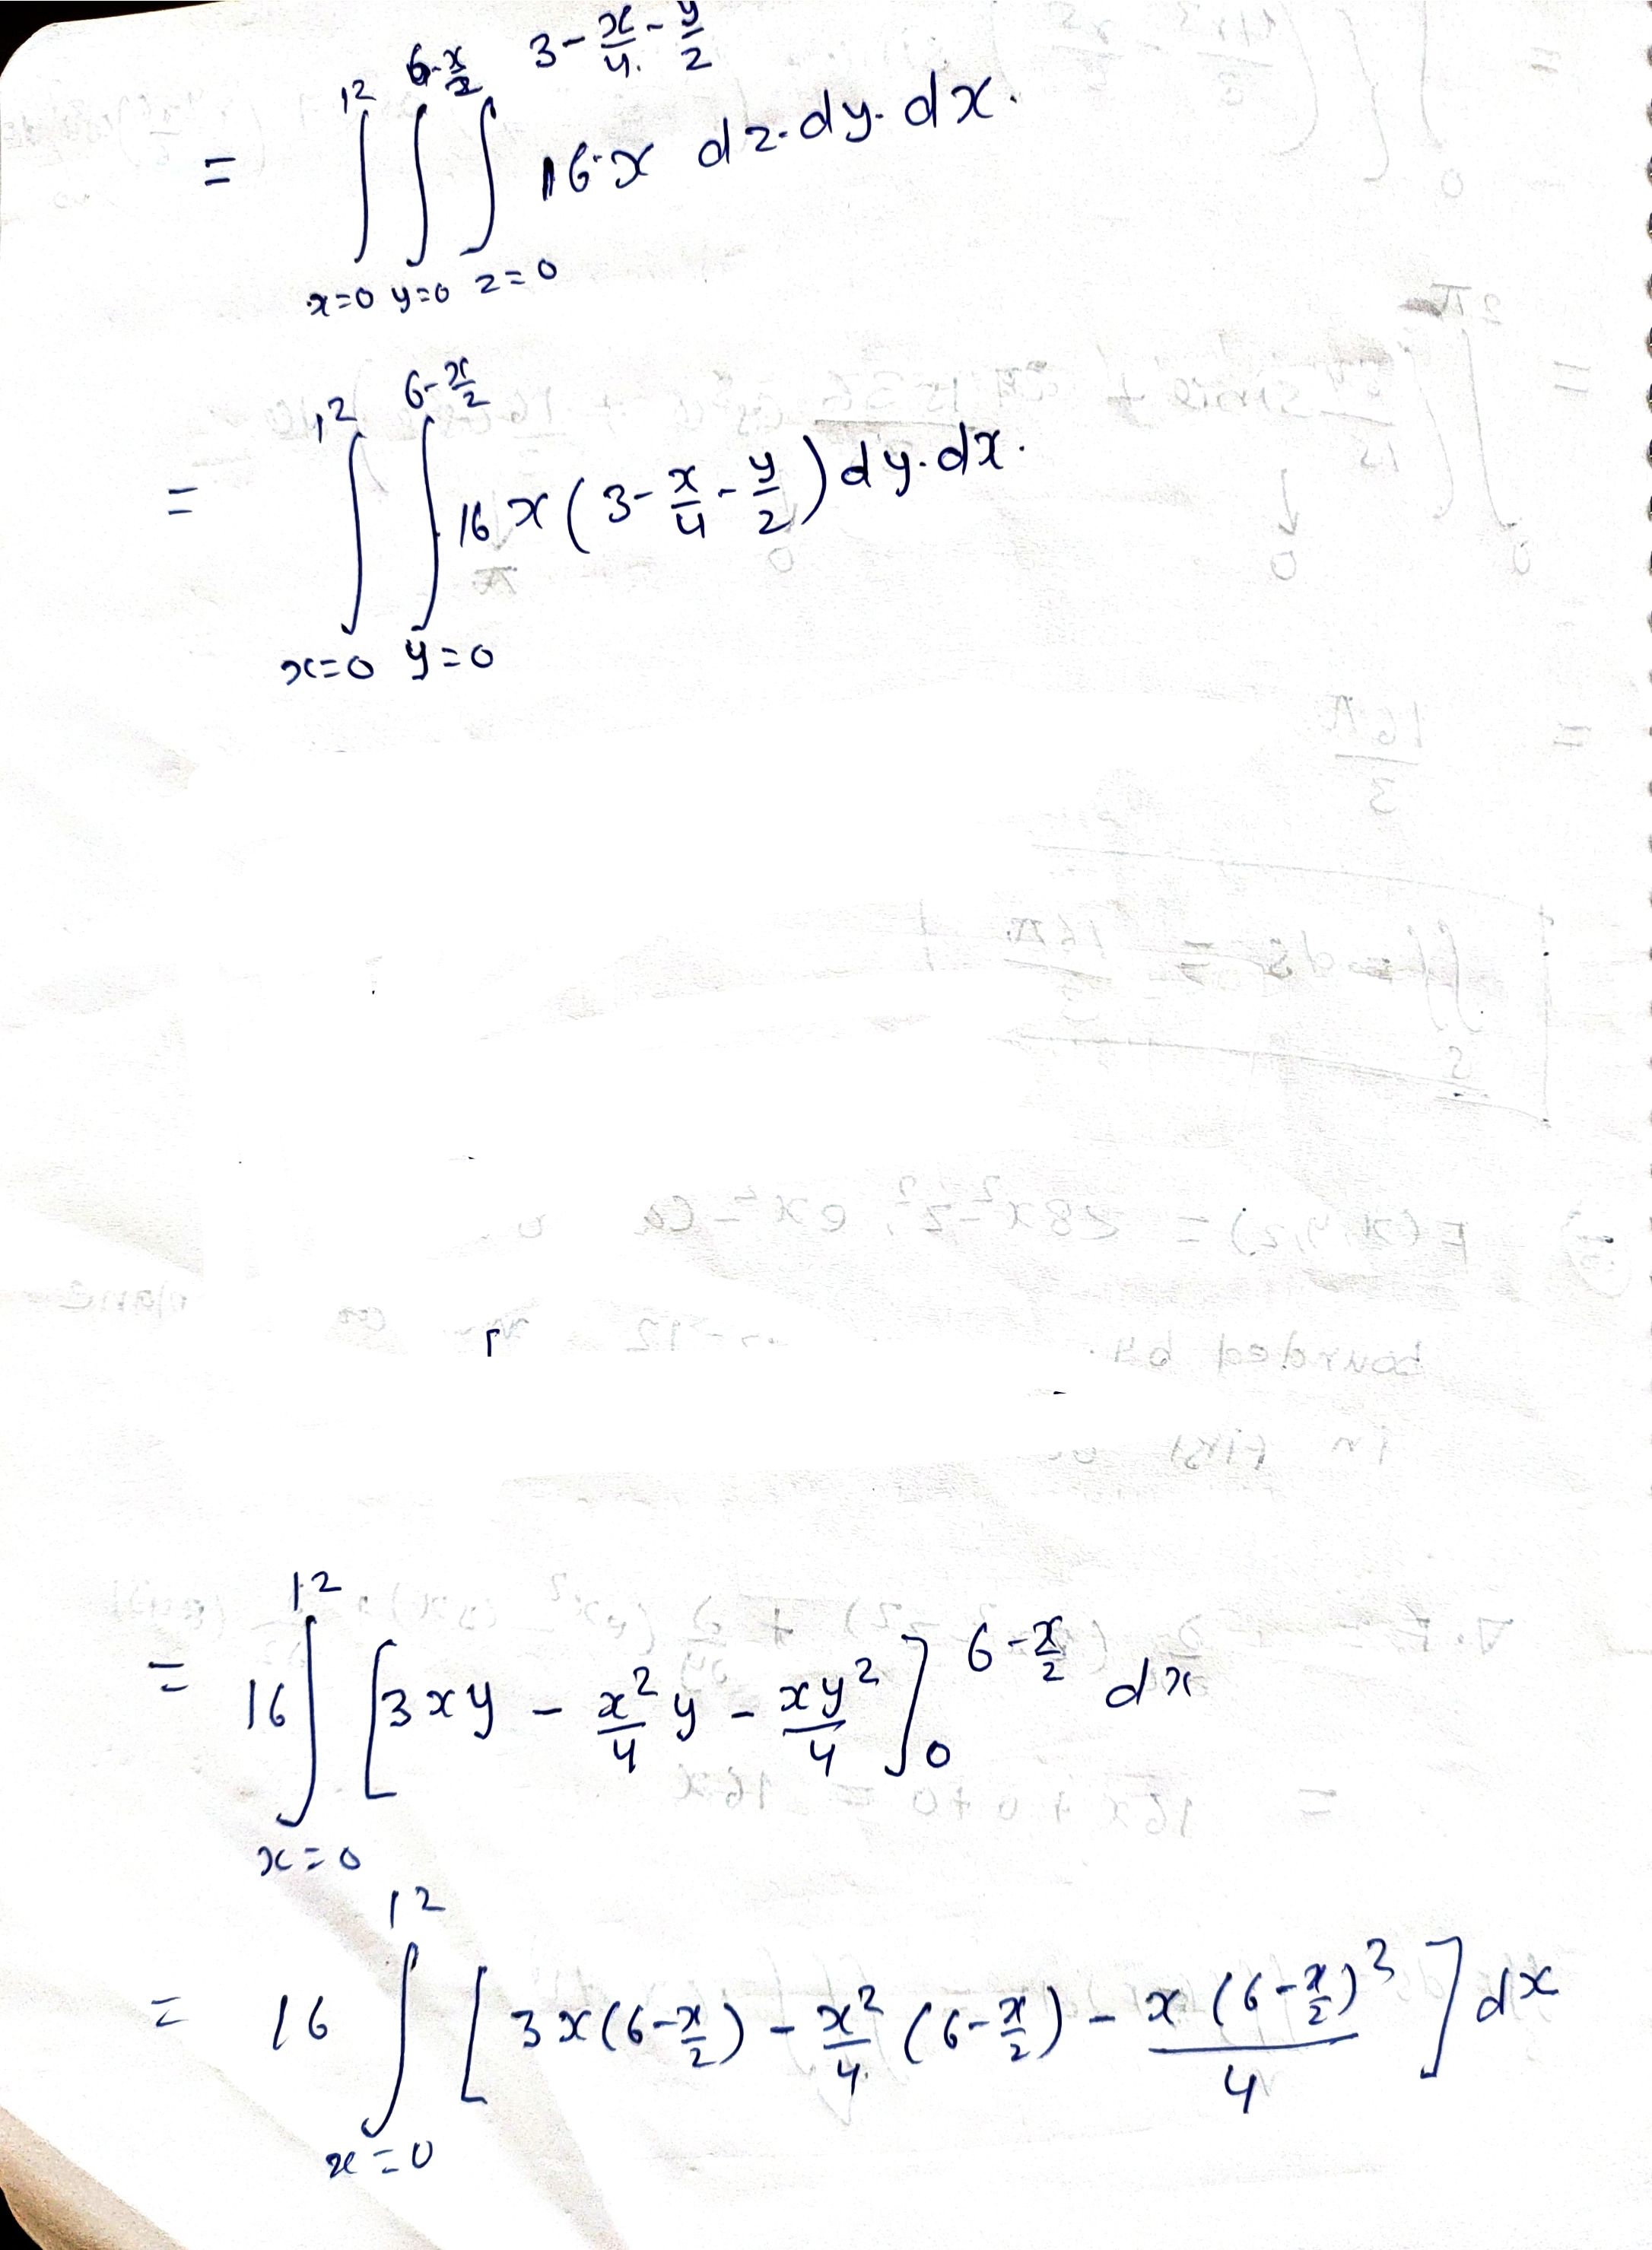 = ∫_{x=0}^{12} ∫_{y=0}^{6-x/2} ∫_{z=0}^{3-x/4-y/2} 16·x dz·dy·dx.
= ∫_{x=0}^{12} ∫_{y=0}^{6-x/2} 16x(3-x/4-y/2)dy·dx.
= 16∫_{x=0}^{12} [3xy - x²/4 y - xy²/4]_0^{6-x/2} dx
= 16 ∫_{x=0}^{12} [3x(6-x/2) - x²/4 (6-x/2) - x(6-x/2)³/4] dx